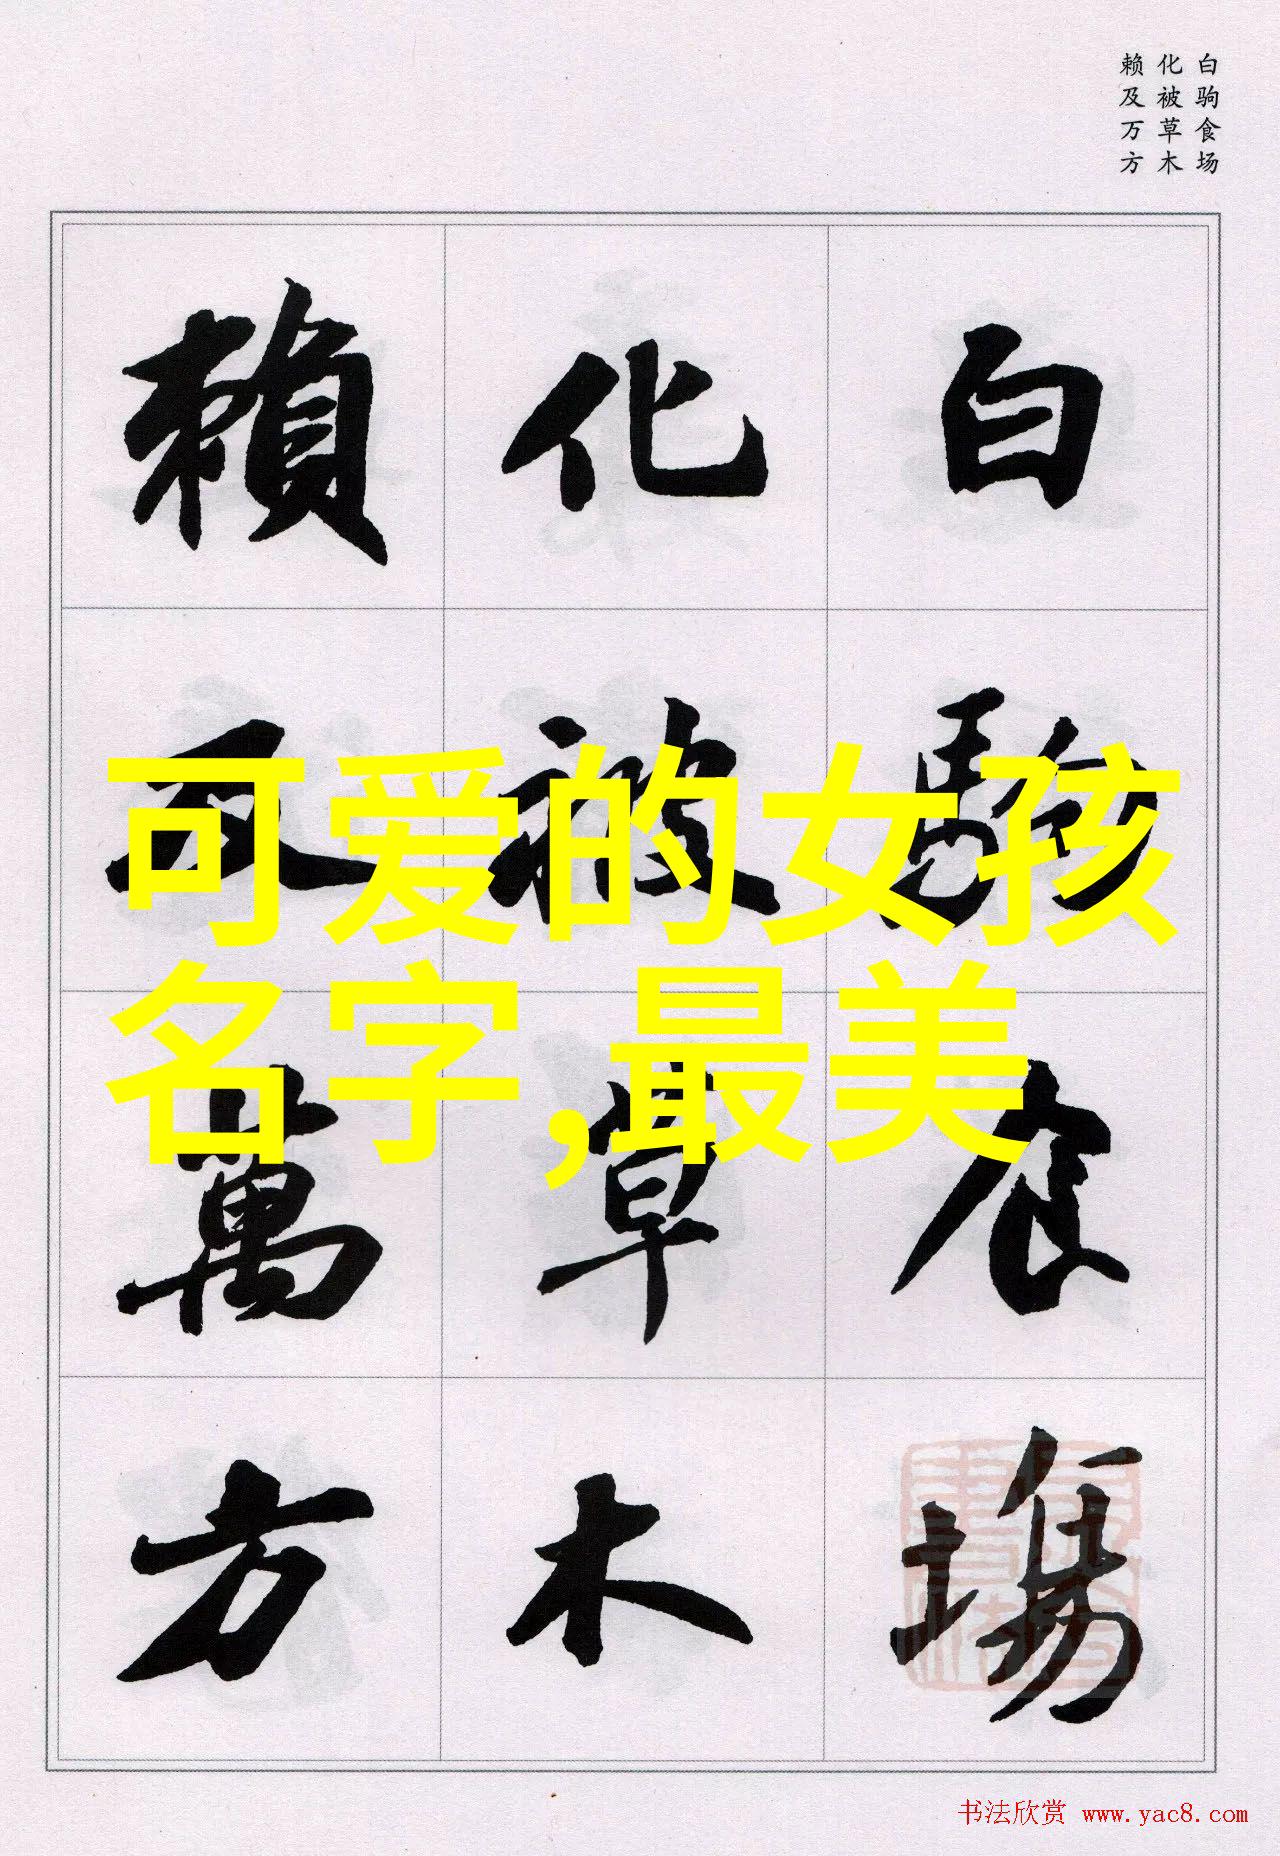 白驹食场
化被草木
赖及万方
白駒食場
化被草木
賴及萬方
可爱的女孩
名字,最美
书法欣赏 www.yac8.com